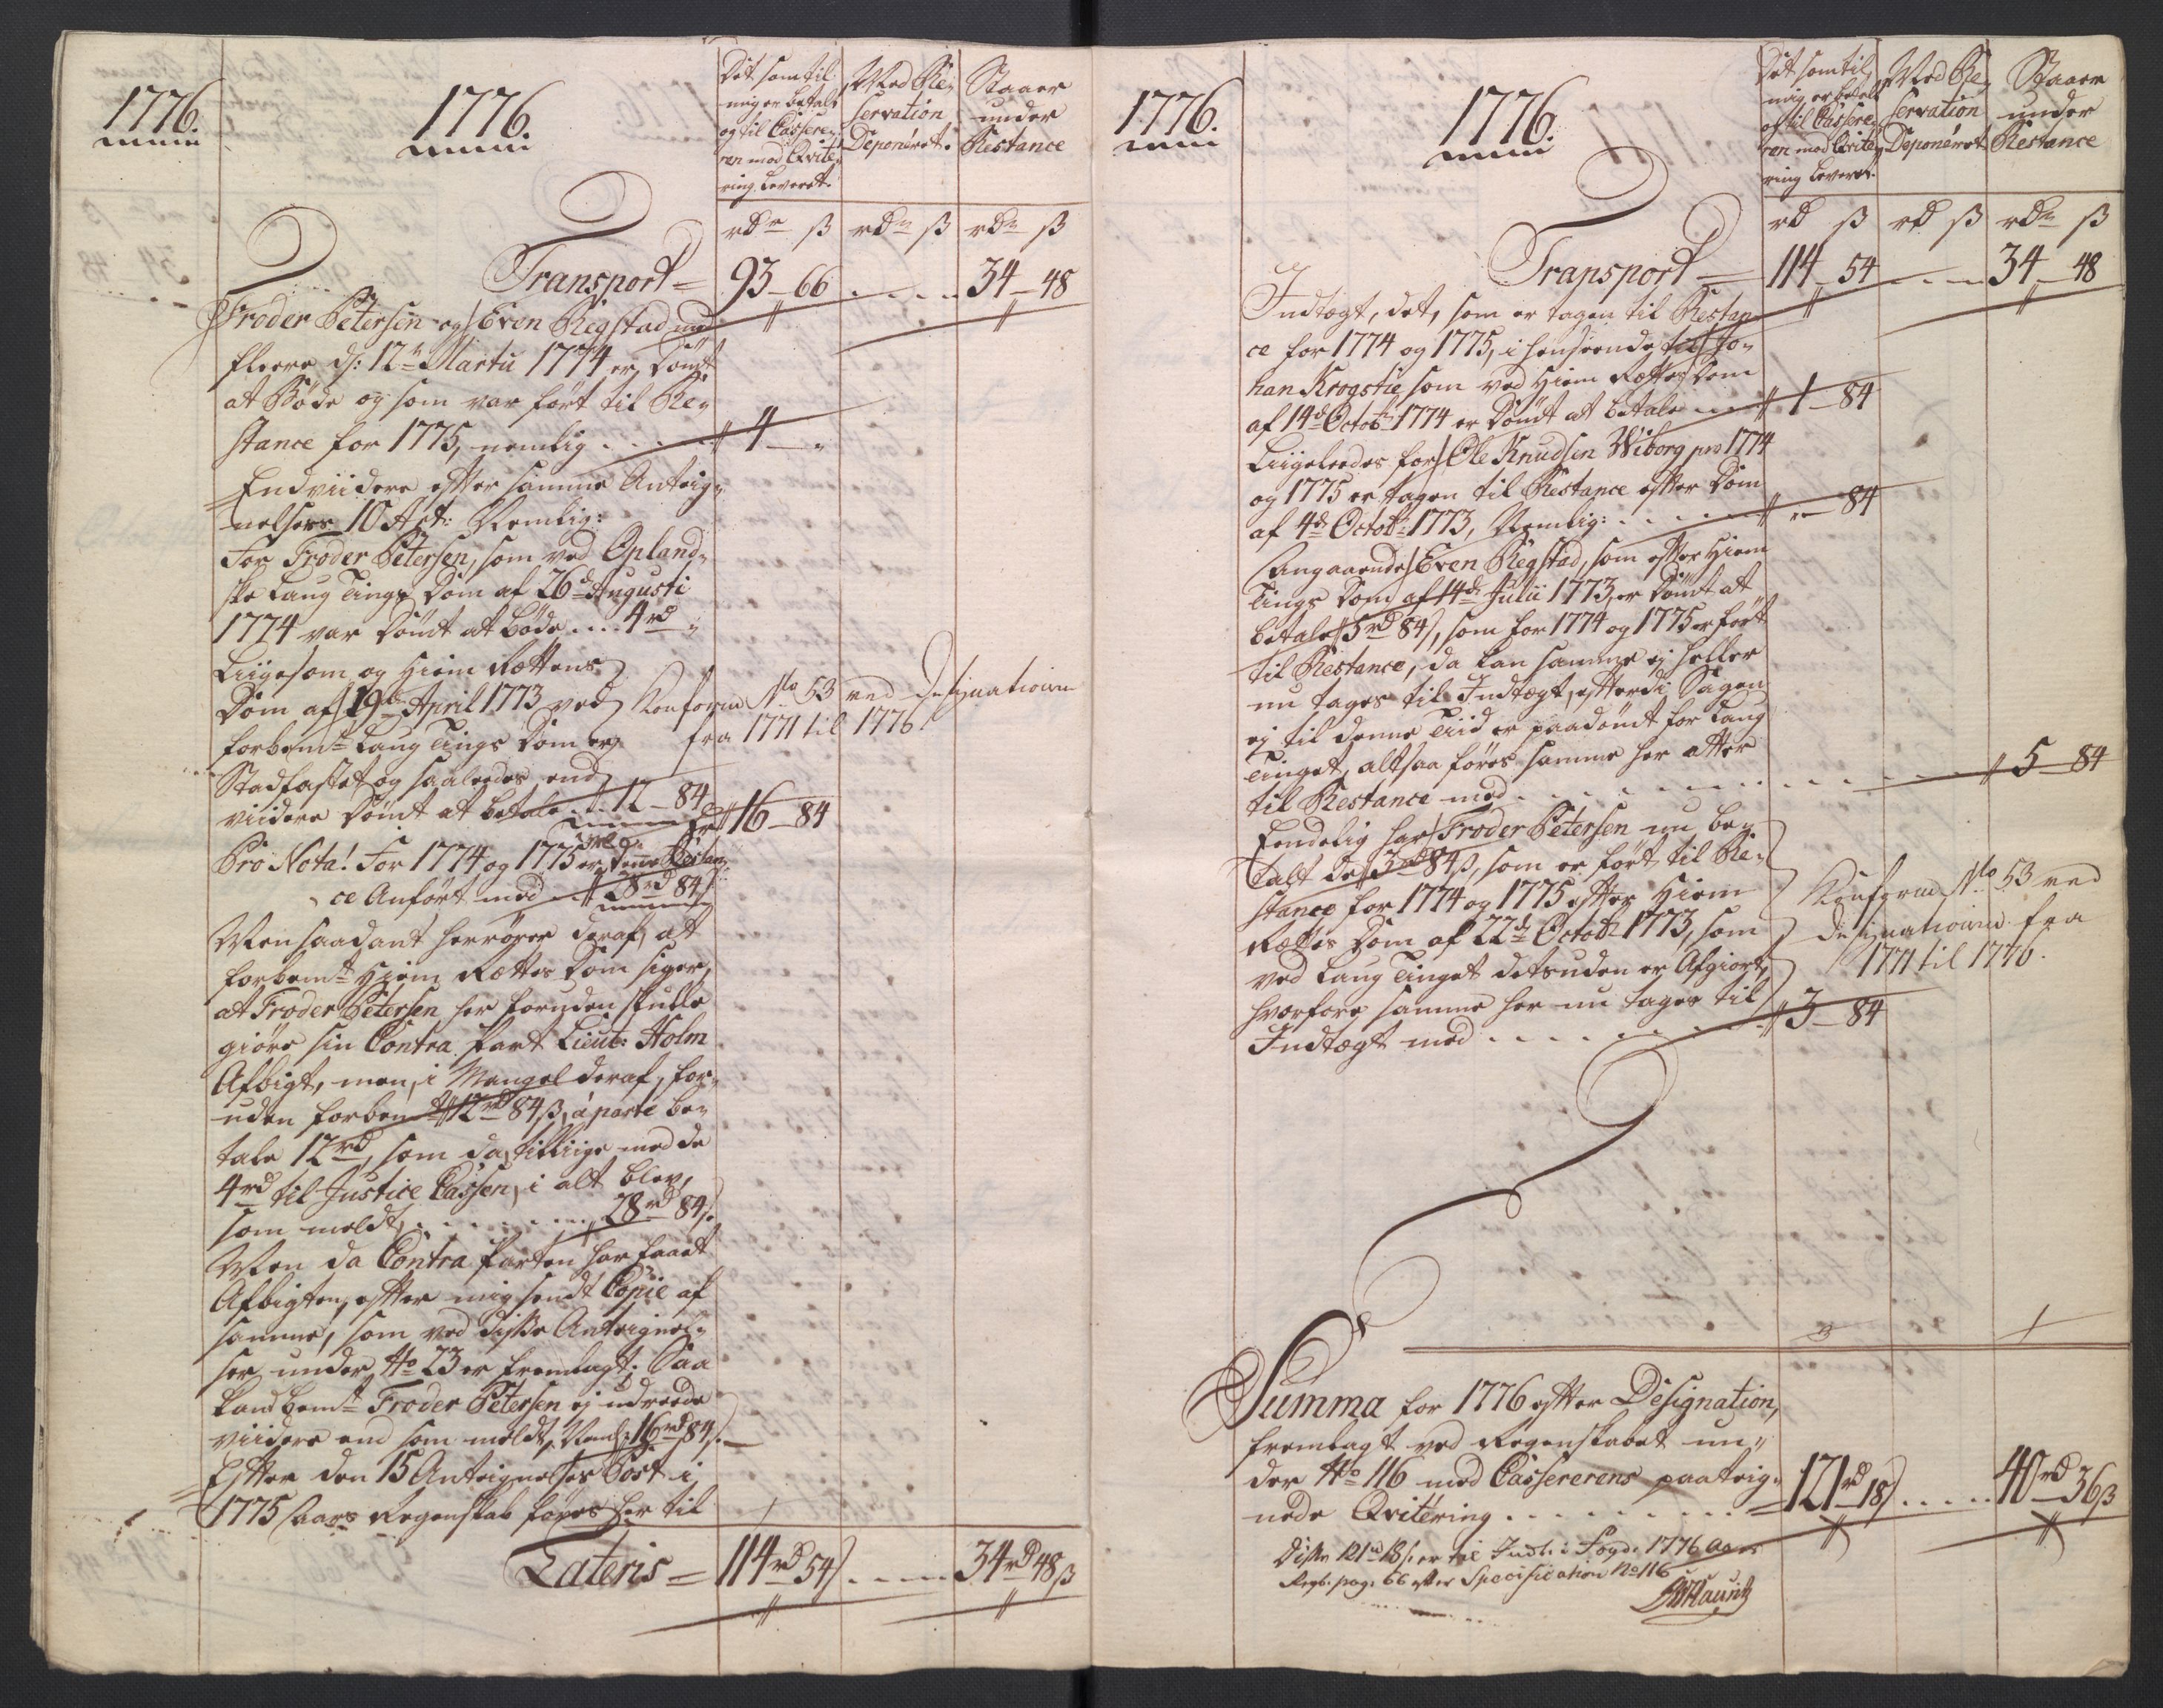 1776.
1776.
Det som til
mig er betalt
og til Cassere-
ren mod Qvite-
ring leveret.
Med Re-
servation
Deponéret.
Staaer
under
Restance
rdr ß rdr ß rdr ß
Transport = 93 – 66 .... 34 – 48
Troder Petersen og Even Regstad med
fleere d: 12te Martii 1774 er Dömt
at Böde og som var fört til Re-
stance for 1775, nemlig .... 4 – "
Endviidere efter samme Anteig-
nelsers 10 Art: Nemlig:
For Troder Petersen, som ved Opland-
ske Laug Tings Dom af 26de Augusti
1774 var Dömt at böde .... 4rd "
Liigesom og Hiem Rettens
Dom af 19de April 1773 ved
forbemte Laug Tings Dom er
Stadfæstet og saaledes end
viidere Dömt at betale .... 12 – 84
er 16 – 84
Konform No 53 ved designationen
fra 1771 til 1776.
Pro Nota! For 1774 og 1775 er denne Restan-
ce Anfört med 28rd 84ß
Men saadant herrörer deraf, at
forbemte Hiem Rettes Dom siger,
at Troder Petersen her foruden skulle
giöre sin Contra Part Lieut: Holm
Afbigt, men, i Mangel deraf, for-
uden forbemte 12rd 84ß, á parte be-
tale 12rd, som da tilliige med de
4rd til Justice Cassen, i alt blev,
som meldt, ........ 28rd 84ß.
Men da Contra Parten har faaet
Afbigten, efter mig sendt Copie af
samme, som ved disse Anteignel-
ser under No 23 er fremlagt; Saa
kand bemte Troder Petersen ej udreede
viidere end som meldt, Neml: 16rd 84ß.
Efter den 15 Anteignelses Post i
1775 Aars Regenskab föres her til
Lateris = 114rd 54ß ..... 34rd 48ß
1776.
1776.
Det som til
mig er betalt
og til Cassere-
ren mod Qvite-
ring leveret.
Med Re-
servation
Deponéret
Staaer
under
Restance
rd ß rd ß rdr ß
Transport = 114 – 54 .... 34 – 48
Indtægt, det, som er tagen til Restan-
ce for 1774 og 1775, i henseende til Jo-
han Krogstie som ved Hiem Rettes Dom
af 14de Octobr 1774 er Dömt at betale 1 – 84
Liigeleedes for Ole Knudsen Wiborg pro 1774
og 1775 er tagen til Restance efter Dom
af 4de Octobr 1773, Nemlig: ..... " – 84
Angaaende Even Regstad, som efter Hiem
Tings Dom af 14de Julii 1773, er Dömt at
betale 5rd 84ß, som for 1774 og 1775 er fört
til Restance, da kan samme ej heller
nu tages til Indtægt, efterdi Sagen
ej til denne Tiid er paadömt for Laug
Tinget, altsaa föres samme her atter
til Restance med ............ 5 – 84
Endelig har Troder Petersen nu be-
talt de 3rd 84ß, som er fört til Re-
stance for 1774 og 1775 efter Hiem
Rettes Dom af 22de Octobr 1773, som
ved Laug Tinget desuden er Afgiort,
hvorfore samme her nu tages til
Indtægt med ........ 3 – 84
Konform No 53 ved
designationen fra
1771 til 1776.
Summa for 1776 efter Designation,
fremlagt ved Regenskabet un-
der No 116 med Cassererens paateig-
nede Qvitéring ......... = 121rd 18ß ..... 40rd 36ß
Disse 121rd 18ß. er til Indt: i Fogd: 1776 Aars
Regb: pag: 66 efter Specification No 116